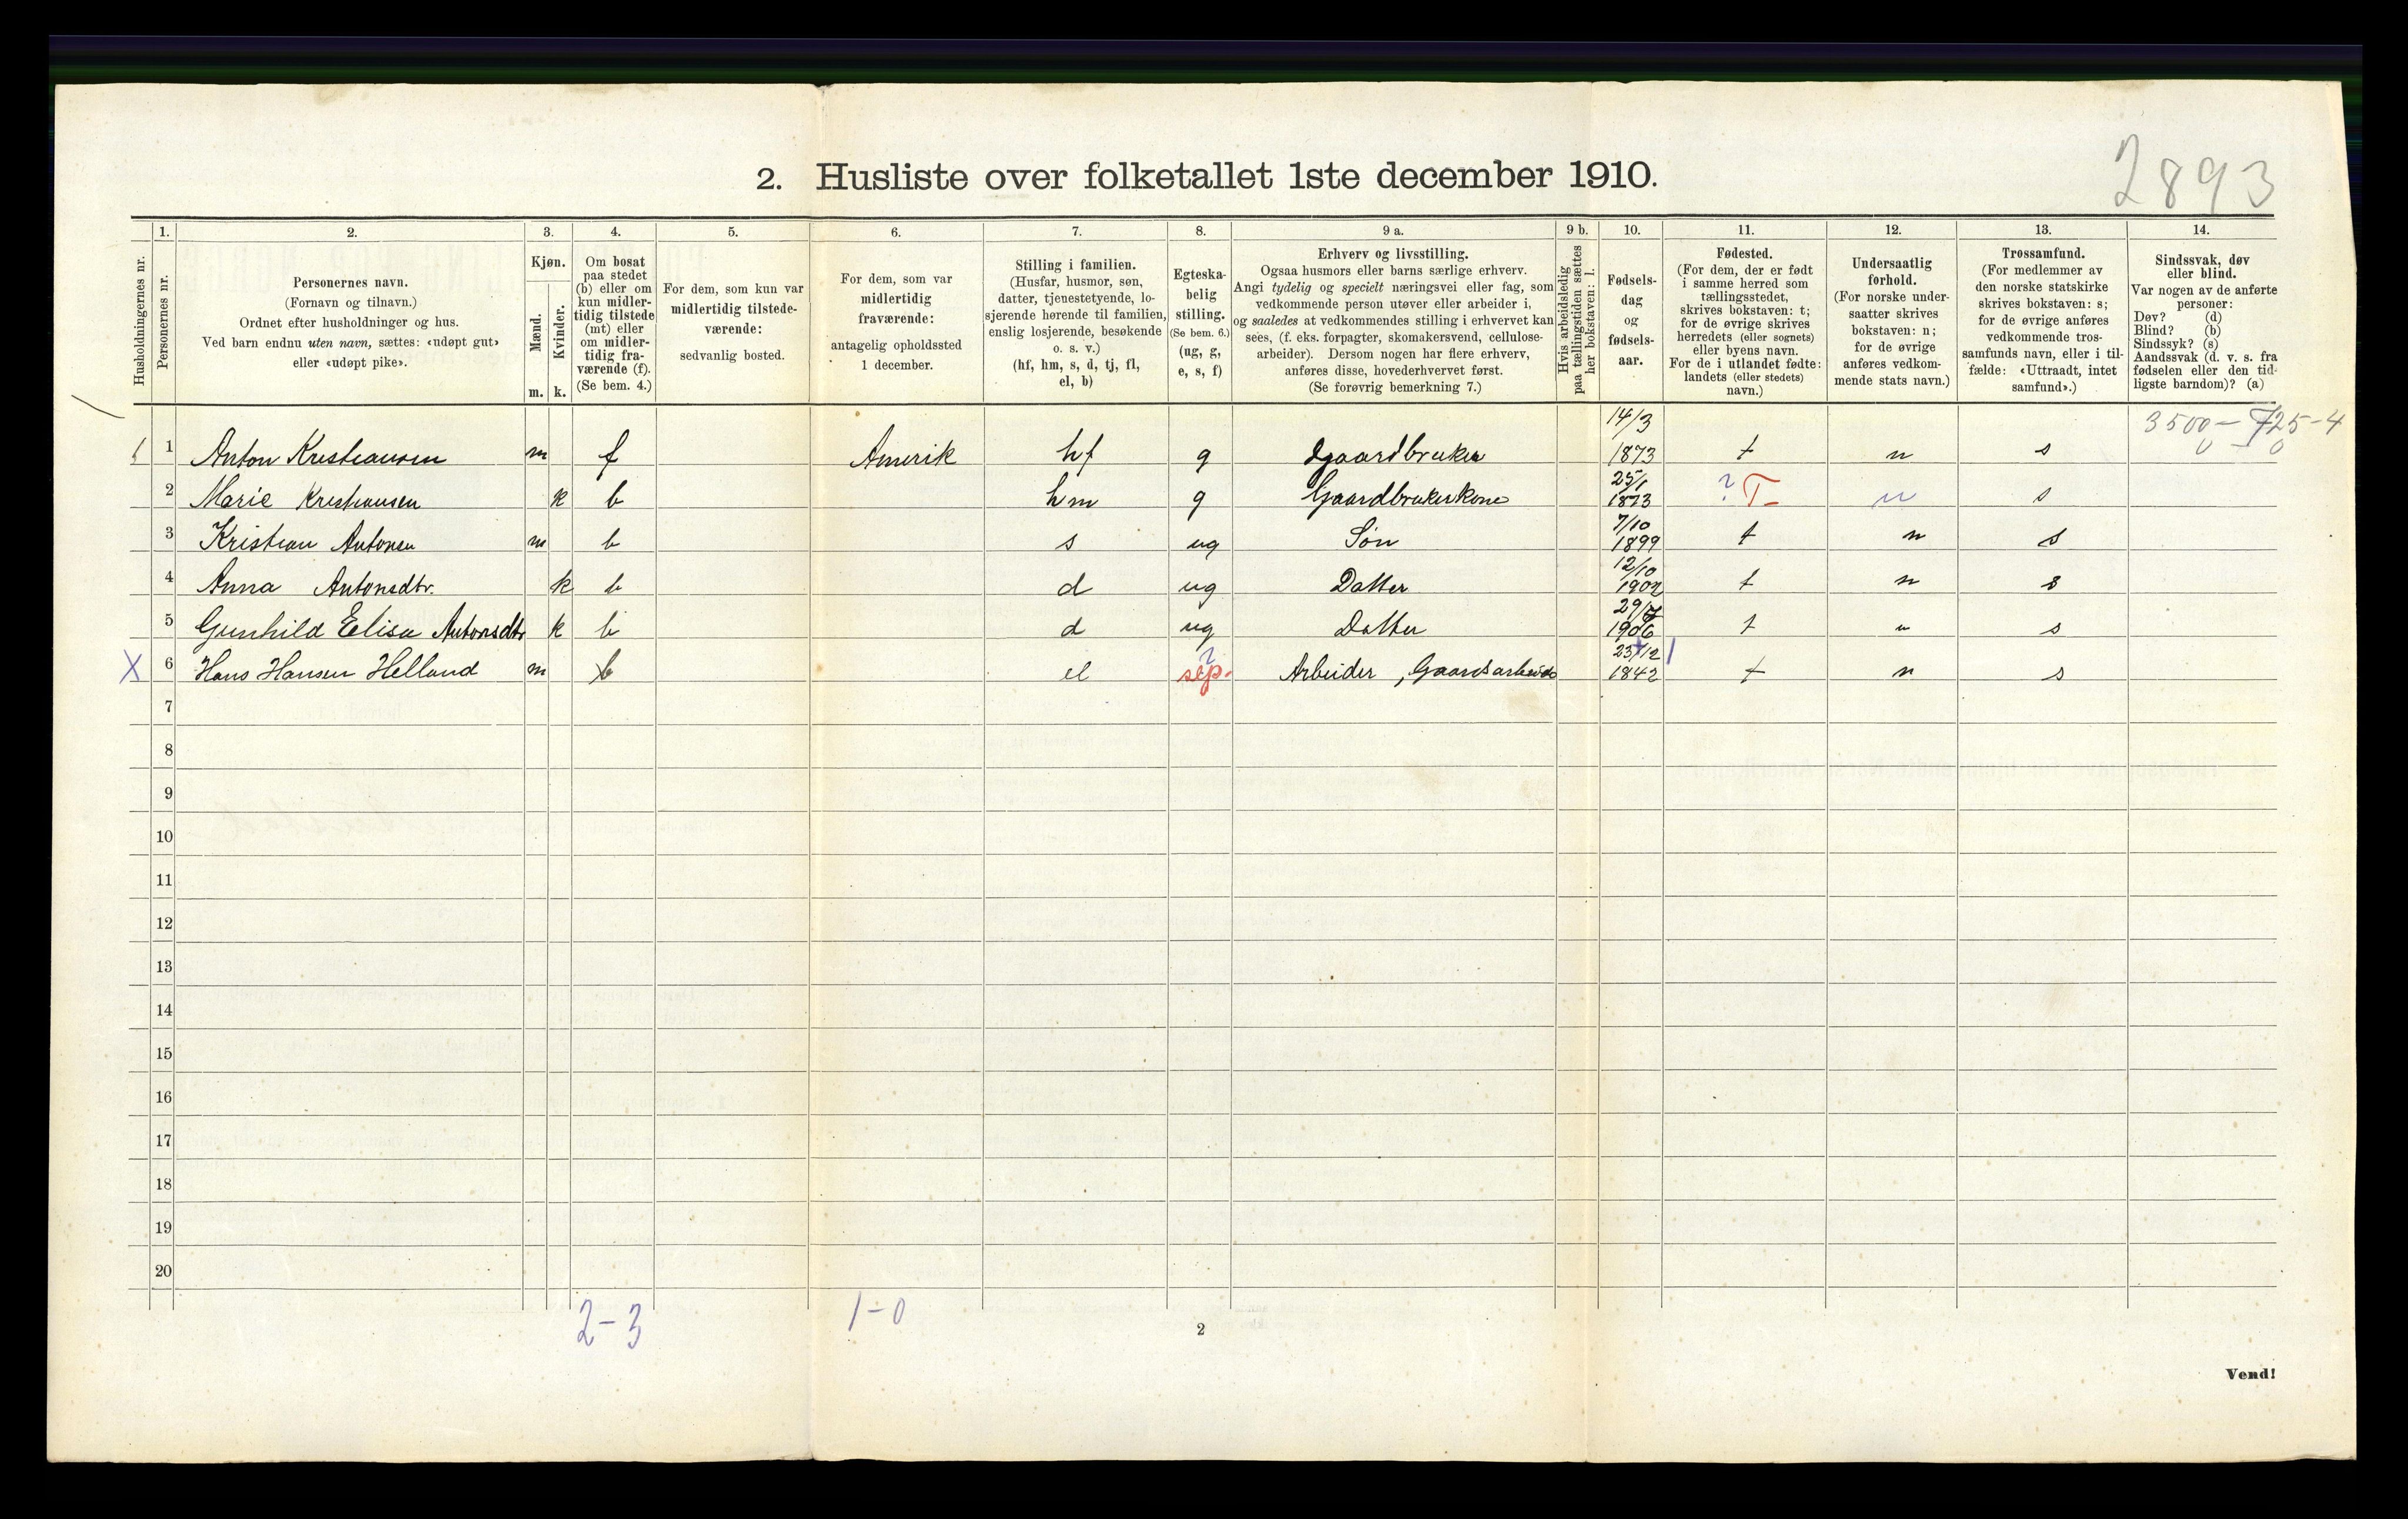 2. Husliste over folketallet 1ste december 1910.
2893
Husholdningernes nr.
1.
Personernes nr.
2.
Personernes navn.
(Fornavn og tilnavn.)
Ordnet efter husholdninger og hus.
Ved barn endnu uten navn, sættes: «udøpt gut»
eller «udøpt pike».
3.
Kjøn.
Mænd.
Kvinder.
m. k.
4.
Om bosat
paa stedet
(b) eller om
kun midler-
tidig tilstede
(mt) eller
om midler-
tidig fra-
værende (f).
(Se bem. 4.)
5.
For dem, som kun var
midlertidig tilstede-
værende:
sedvanlig bosted.
6.
For dem, som var
midlertidig
fraværende:
antagelig opholdssted
1 december.
7.
Stilling i familien.
(Husfar, husmor, søn,
datter, tjenestetyende, lo-
sjerende hørende til familien,
enslig losjerende, besøkende
o. s. v.)
(hf, hm, s, d, tj, fl,
el, b)
8.
Egteska-
belig
stilling.
(Se bem. 6.)
(ug, g,
e, s, f)
9 a.
Erhverv og livsstilling.
Ogsaa husmors eller barns særlige erhverv.
Angi tydelig og specielt næringsvei eller fag, som
vedkommende person utøver eller arbeider i,
og saaledes at vedkommendes stilling i erhvervet kan
sees, (f. eks. forpagter, skomakersvend, cellulose-
arbeider). Dersom nogen har flere erhverv,
anføres disse, hovederhvervet først.
(Se forøvrig bemerkning 7.)
9 b.
Hvis arbeidsledig
paa tællingstiden sættes
her bokstaven: l.
10.
Fødsels-
dag
og
fødsels-
aar.
11.
Fødested.
(For dem, der er født
i samme herred som
tællingsstedet,
skrives bokstaven: t;
for de øvrige skrives
herredets (eller sognets)
eller byens navn.
For de i utlandet fødte:
landets (eller stedets)
navn.)
12.
Undersaatlig
forhold.
(For norske under-
saatter skrives
bokstaven: n;
for de øvrige
anføres vedkom-
mende stats navn.)
13.
Trossamfund.
(For medlemmer av
den norske statskirke
skrives bokstaven: s;
for de øvrige anføres
vedkommende tros-
samfunds navn, eller i til-
fælde: «Uttraadt, intet
samfund».)
14.
Sindssvak, døv
eller blind.
Var nogen av de anførte
personer:
Døv? (d)
Blind? (b)
Sindssyk? (s)
Aandssvak (d. v. s. fra
fødselen eller den tid-
ligste barndom)? (a)
1 1 Anton Kristiansen m f Amerik hf g Gaardbruker 14/3 1873 t n s
2 Marie Kristiansen k b hm g Gaardbrukerkone 25/1 1873 ? T n s
3 Kristian Antonsen m b s ug Søn 7/10 1899 t n s
4 Anna Antonsdtr. k b d ug Datter 12/10 1902 t n s
5 Gunhild Elisa Antonsdtr k b d ug Datter 1906 t n s
X 6 Hans Hansen Helland m b el ? sep. Arbeider, Gaardsarbeide 23/12 1842 t n s
7
8
9
10
11
12
13
14
15
16
17
18
19
20
2-3 1-0
2
Vend!